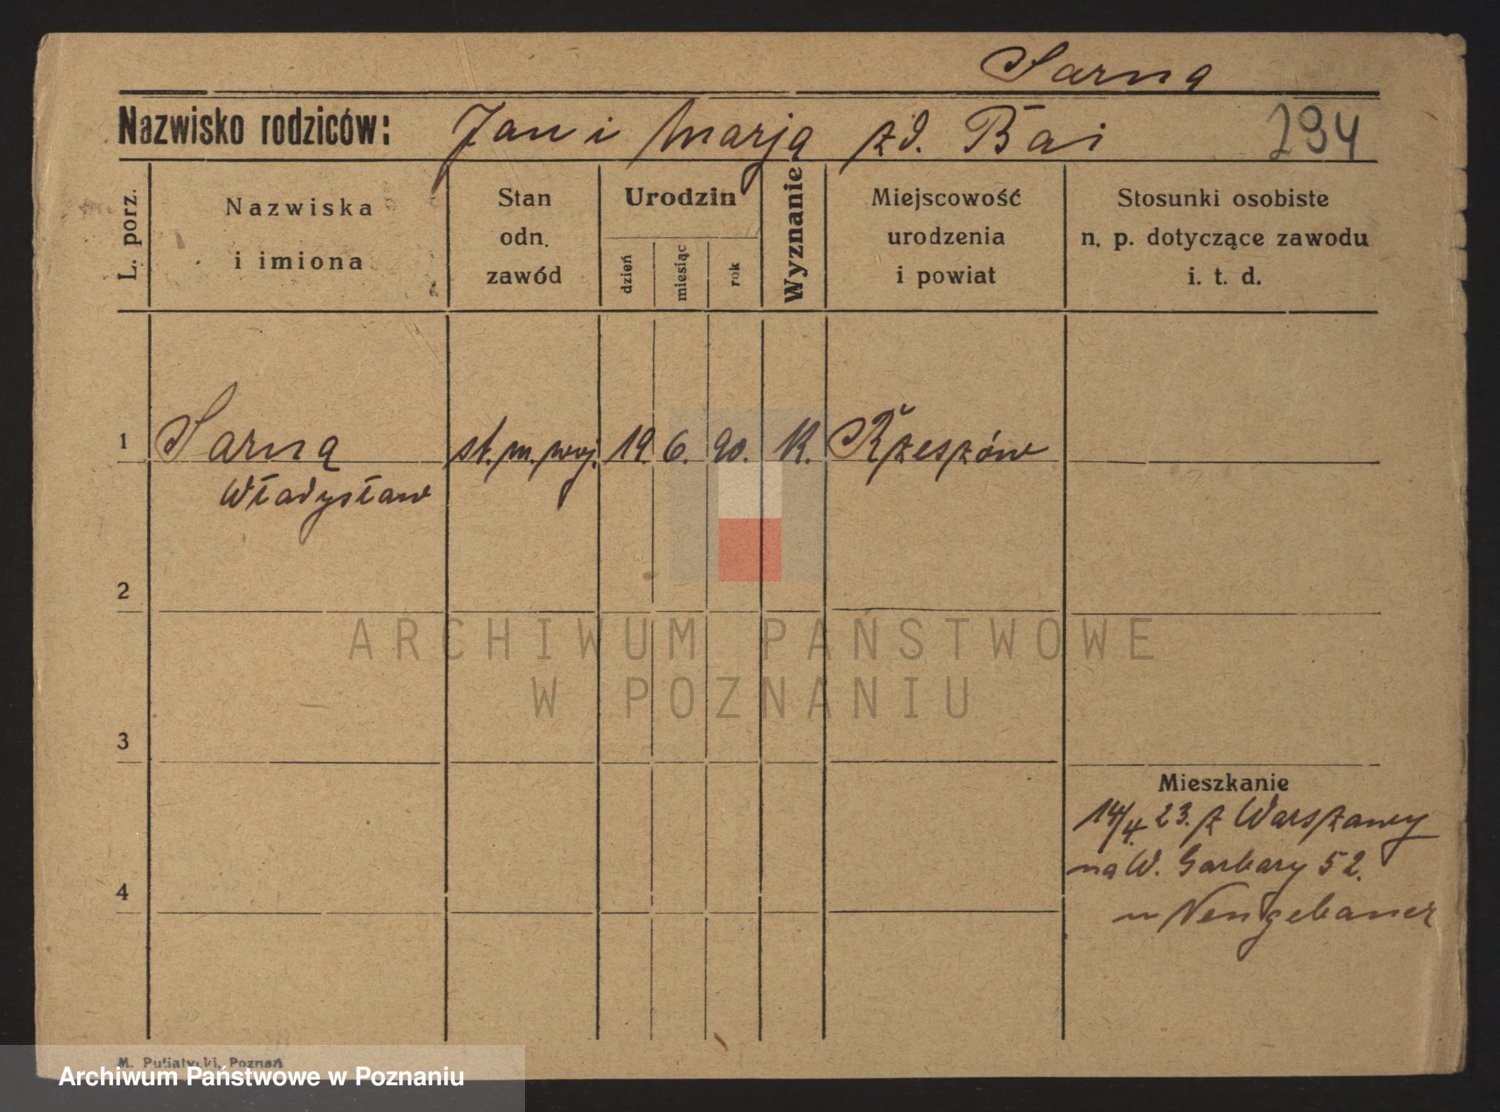 Sarna
Nazwisko rodziców: Jan i Marja zd. Bai 294
L. porz.
Nazwiska i imiona
Stan odn. zawód
Urodzin
dzień miesiąc rok
Wyznanie
Miejscowość urodzenia i powiat
Stosunki osobiste n. p. dotyczące zawodu i. t. d.
1 Sarna st. m. woj. 19. 6. 90. K. Rzeszów
Władysław
2
ARCHIWUM PAŃSTWOWE
W POZNANIU
3
Mieszkanie
14/4. 23. z Warszawy
na W. Garbary 52.
4
u Neugebauer
M. Putiatycki, Poznań
Archiwum Państwowe w Poznaniu